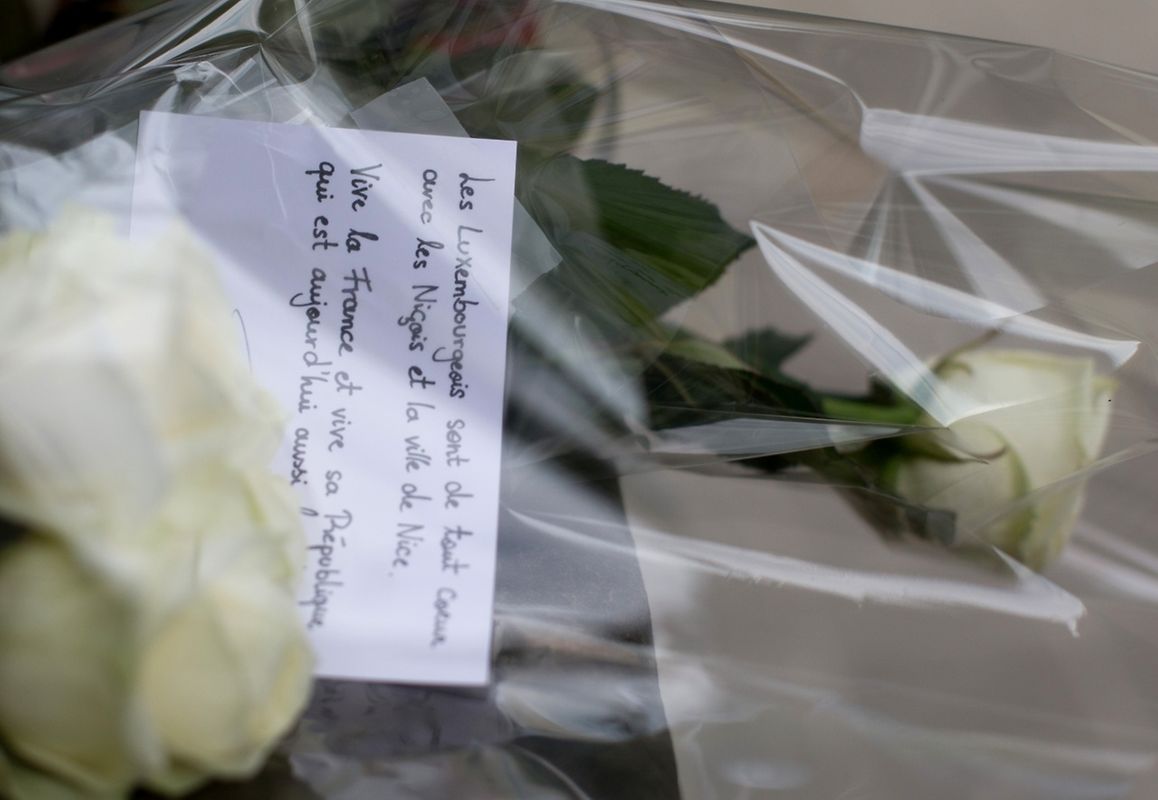 Les Luxembourgeois sont de tout coeur
avec les Niçois et la ville de Nice.
Vive la France et vive sa République
qui est aujourd'hui aussi